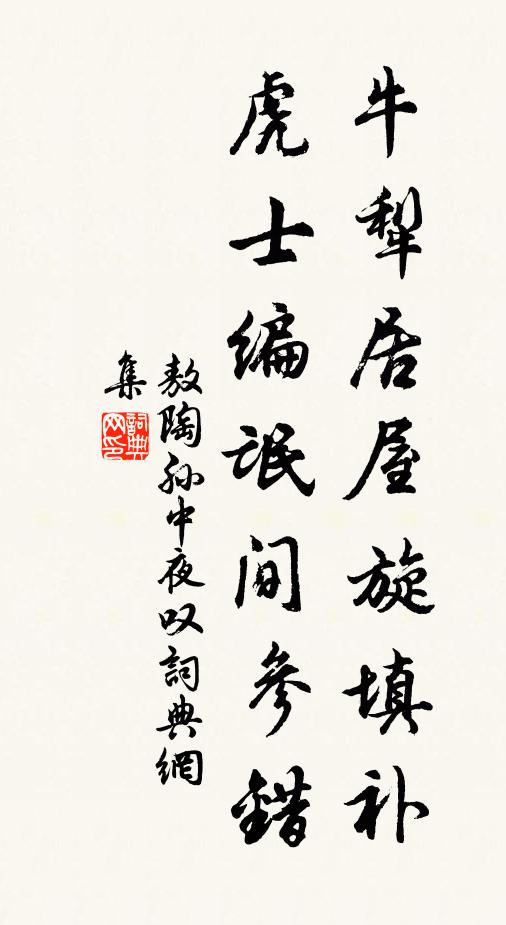 牛犁居屋旋填补
虎士编氓间参错
敖陶孙中夜叹词典網
集
詞典
网印